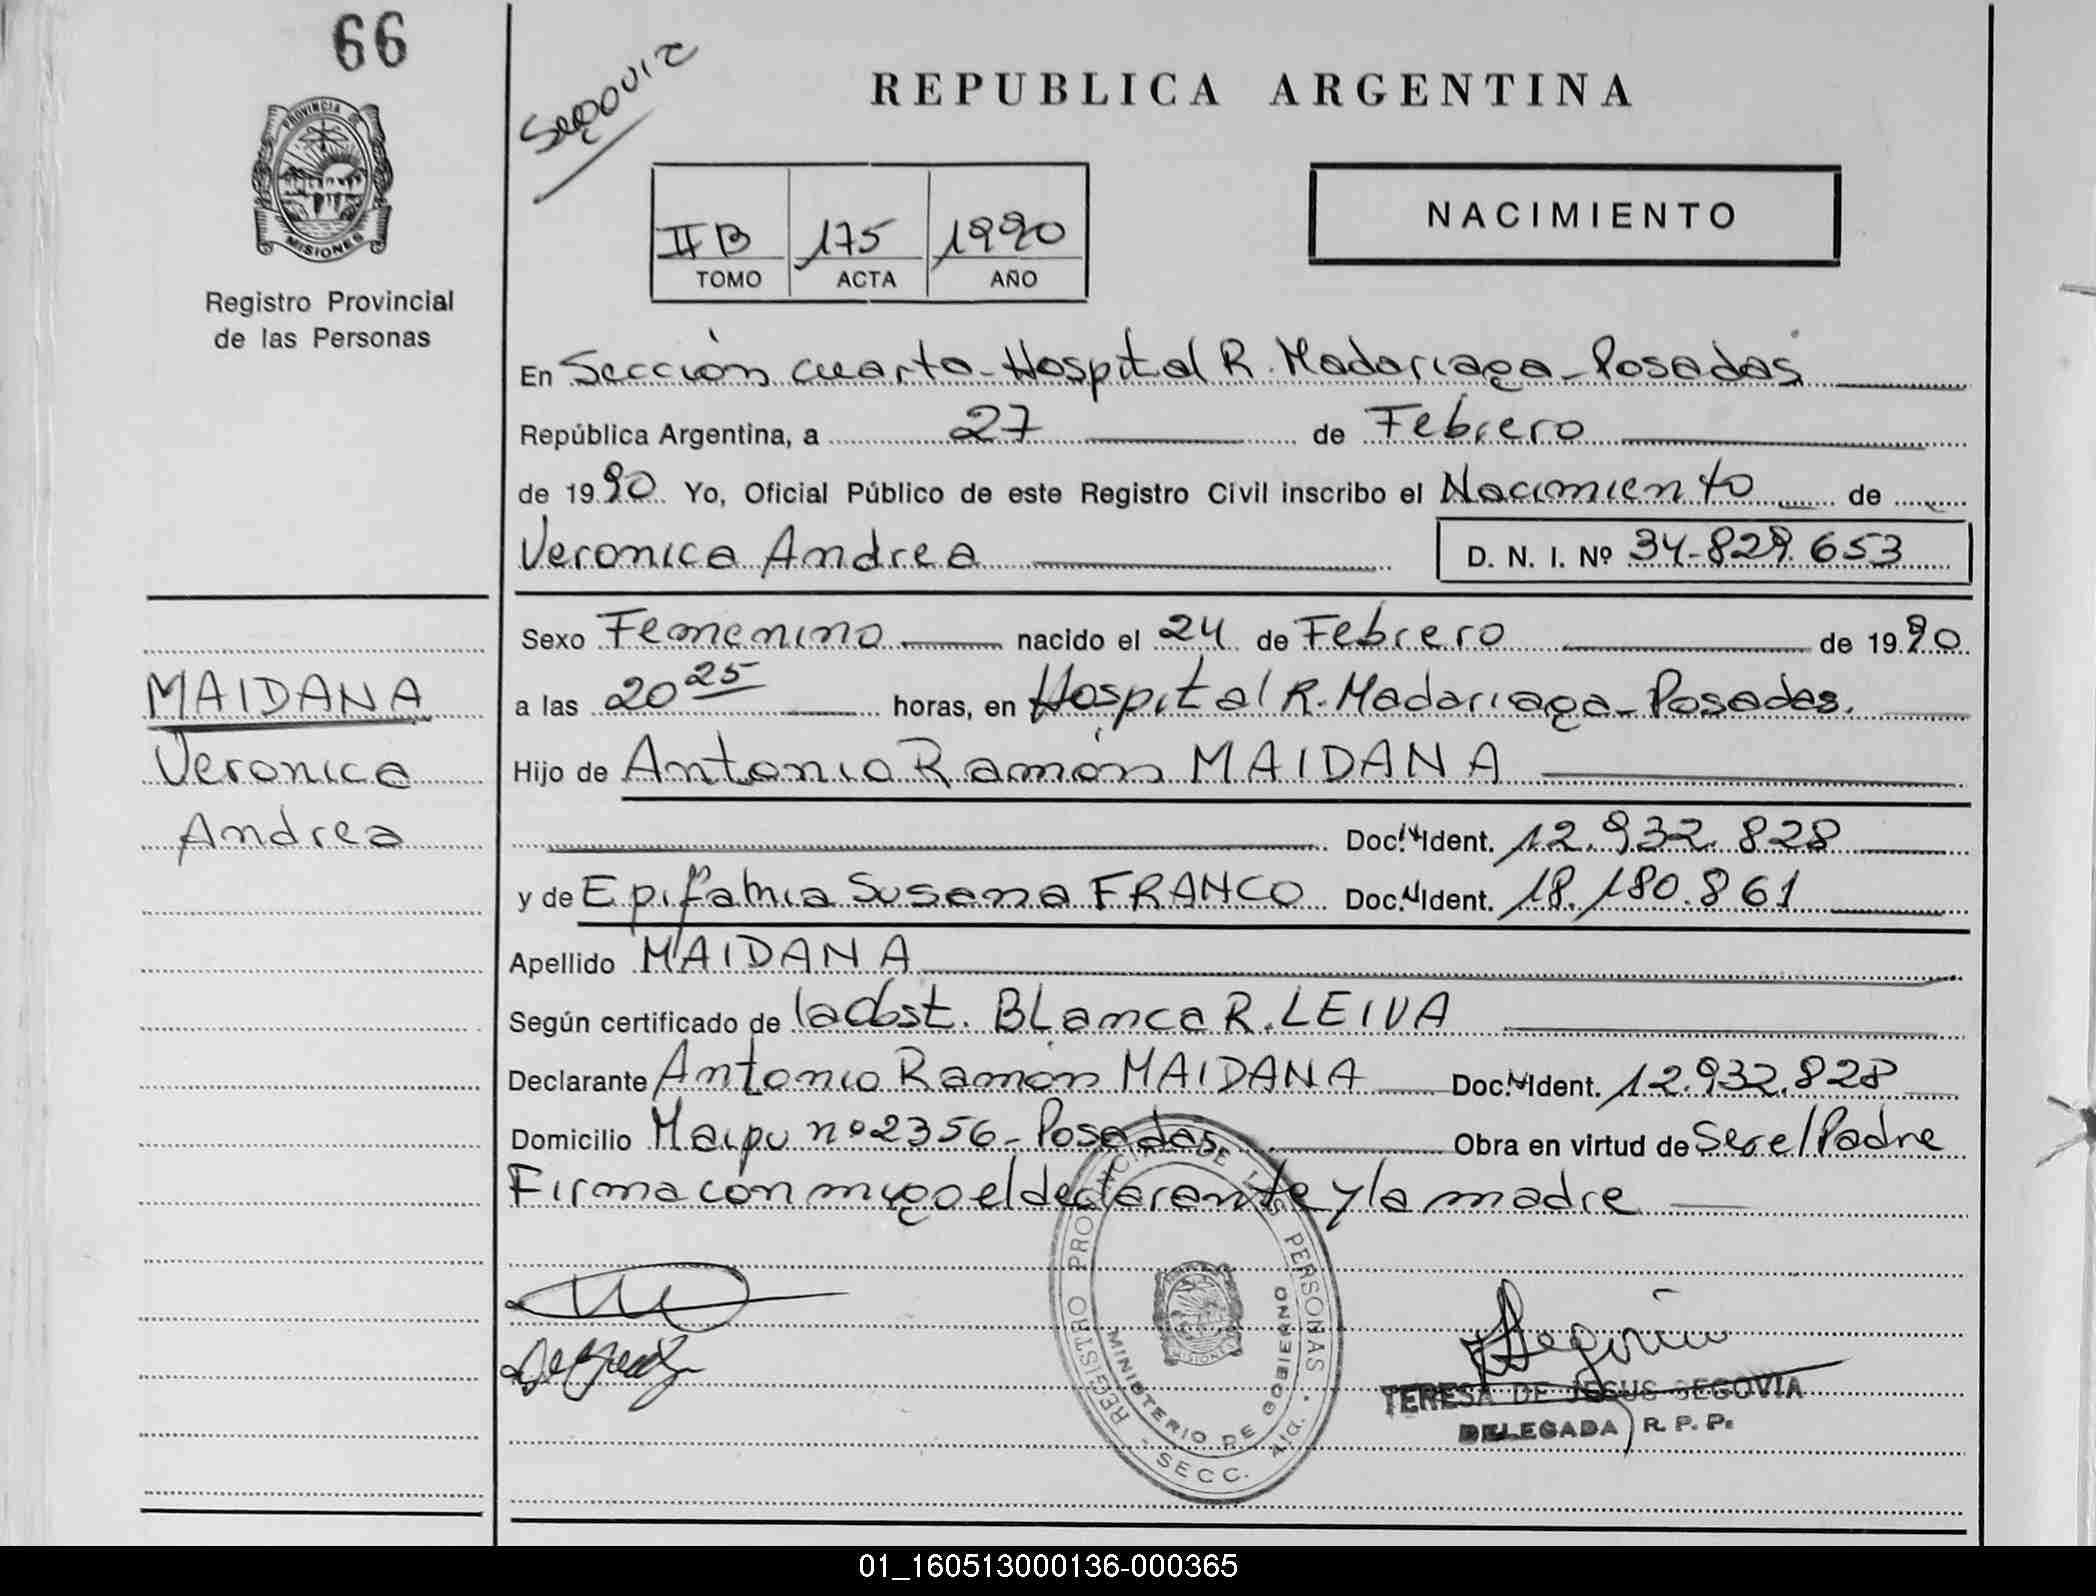 66
PROVINCIA DE
MISIONES
Registro Provincial
de las Personas
Segovia
REPUBLICA ARGENTINA
II B 175 1990
TOMO ACTA AÑO
NACIMIENTO
En Sección cuarta - Hospital R. Madariaga - Posadas
República Argentina, a 27 de Febrero
de 1990 Yo, Oficial Público de este Registro Civil inscribo el Nacimiento de
Veronica Andrea D. N. I. Nº 34.829.653
Sexo Femenino nacido el 24 de Febrero de 1990
a las 20 25 horas, en Hospital R. Madariaga - Posadas.
Hijo de Antonio Ramón MAIDANA
Doc. N. Ident. 12.932.828
y de Epifahia Susana FRANCO Doc. N. Ident. 18.180.861
Apellido MAIDANA
Según certificado de la obst. Blanca R. LEIVA
Declarante Antonio Ramón MAIDANA Doc. N. Ident. 12.932.828
Domicilio Maipu nº 2356 - Posadas Obra en virtud de Ser el Padre
Firma con migo el declarante y la madre
MAIDANA
Veronica
Andrea
REGISTRO PROVINCIAL DE LAS PERSONAS
MINISTERIO DE GOBIERNO
MISIONES
SECC. 4ta.
TERESA DE JESUS SEGOVIA
DELEGADA R. P. P.
01_160513000136-000365